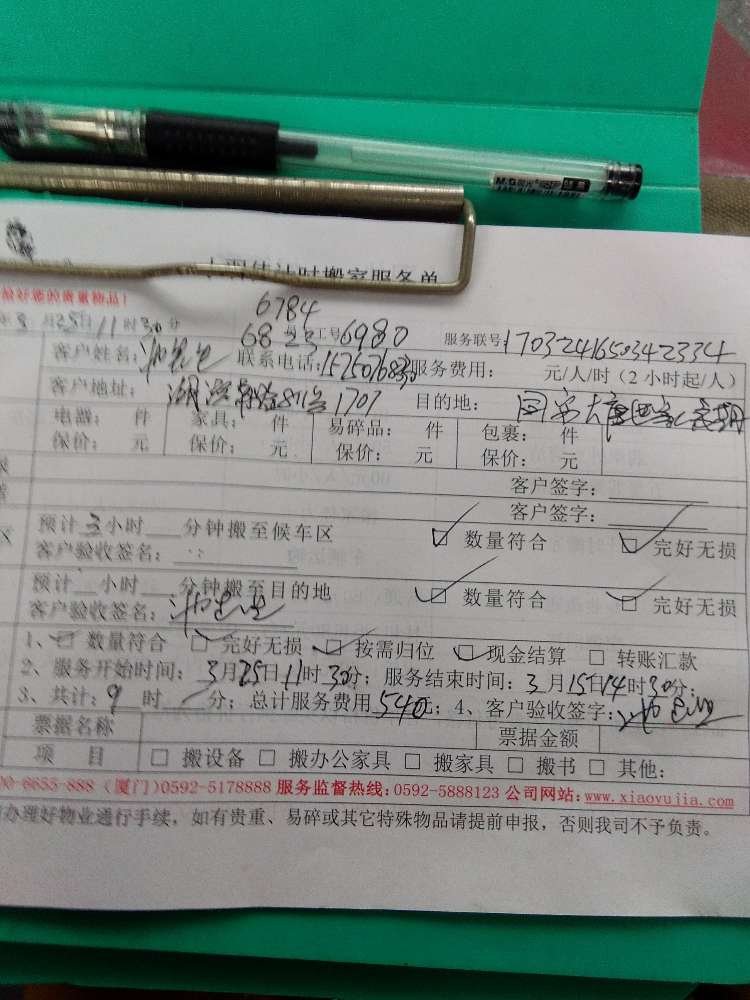 计时搬家服务单
6784
月25日11时30分
68 工号6980 服务联号:1703241650342334
客户姓名: 联系电话: 服务费用: 元/人/时(2小时起/人)
客户地址: 1707 目的地:
电器: 件 家具: 件 易碎品: 件 包裹: 件
保价: 元 保价: 元 保价: 元 保价: 元
客户签字:
客户签字:
预计3小时 分钟搬至候车区 数量符合 完好无损
客户验收签名:
预计 小时 分钟搬至目的地 数量符合 完好无损
客户验收签名:
1、 数量符合 完好无损 按需归位 现金结算 转账汇款
2、服务开始时间: 3月25日11时30分; 服务结束时间: 3月15日14时30分;
3、共计: 9时 分; 总计服务费用540元; 4、客户验收签字:
票据名称 票据金额
项 目 搬设备 搬办公家具 搬家具 搬书 其他:
00-6655-888 (厦门)0592-5178888 服务监督热线: 0592-5888123 公司网站: www.xiaoyujia.com
办理好物业通行手续,如有贵重、易碎或其它特殊物品请提前申报,否则我司不予负责。